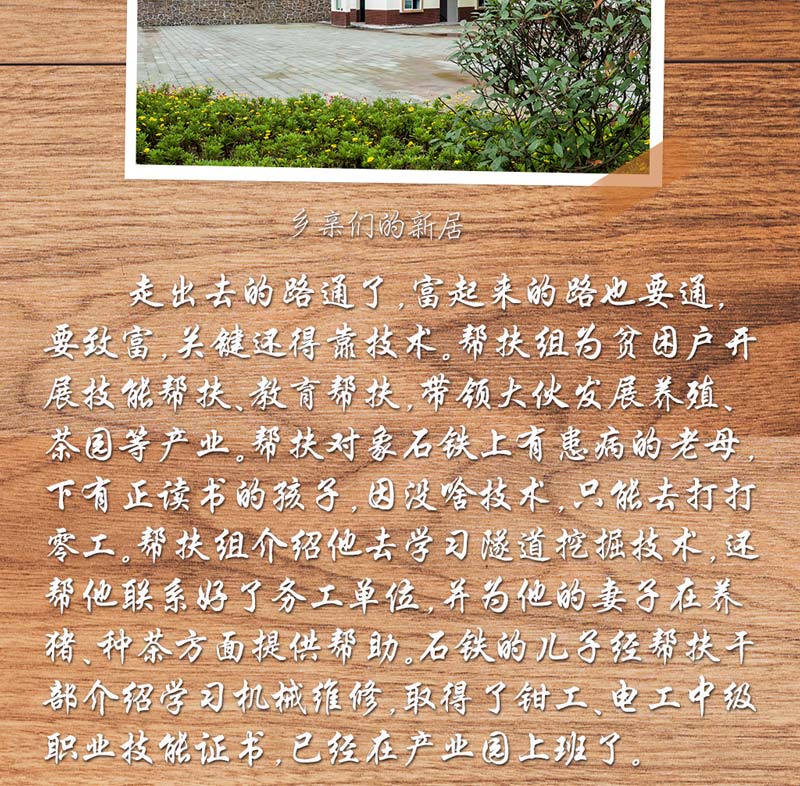 乡亲们的新居
走出去的路通了，富起来的路也要通，
要致富，关键还得靠技术。帮扶组为贫困户开
展技能帮扶、教育帮扶，带领大伙发展养殖、
茶园等产业。帮扶对象石铁上有患病的老母，
下有正读书的孩子，因没啥技术，只能去打打
零工。帮扶组介绍他去学习隧道挖掘技术，还
帮他联系好了务工单位，并为他的妻子在养
猪、种茶方面提供帮助。石铁的儿子经帮扶干
部介绍学习机械维修，取得了钳工、电工中级
职业技能证书，已经在产业园上班了。